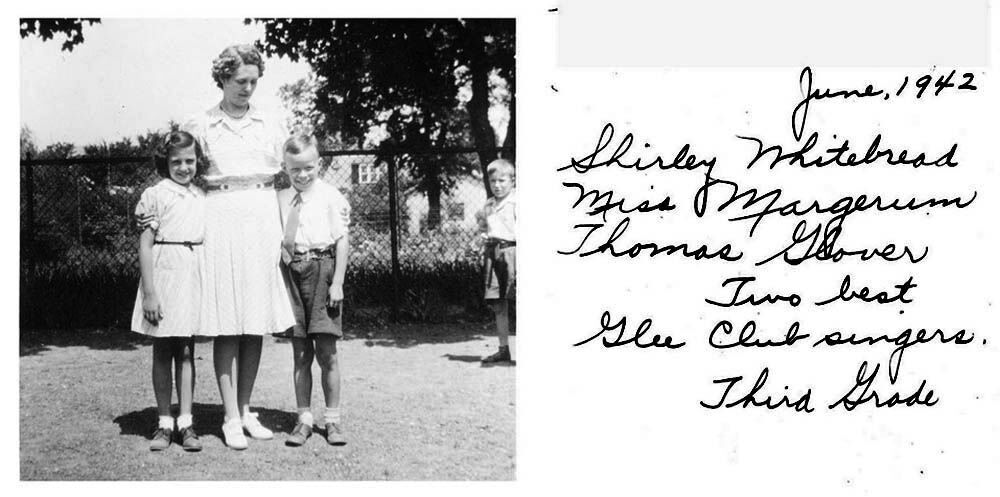 June, 1942
Shirley Whitebread
Miss Margerum
Thomas Glover
Two best
Glee Club singers.
Third Grade